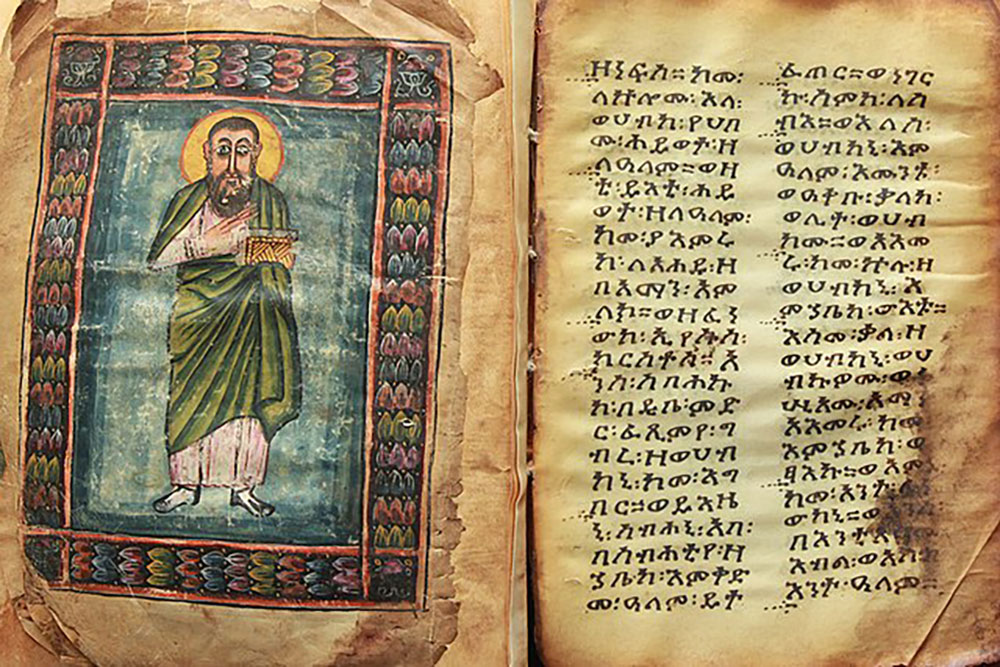 ዘነፍስ። ከመ፡
ለኵሎሙ፡ እለ፡
ወሀብከ፡ የሀበ
ሙ፡ ሕይወተ፡ ዘ
ለዓለም። ወዛ
ቲ፡ ይእቲ፡ ሕይ
ወት፡ ዘለዓለም፡
ከመ፡ ያእምሩ
ከ፡ ለአሐዱ፡ ዘ
በአማን፡ አም
ላክ። ወዘፈነ
ውከ፡ ኢየሱስ፡
ክርስቶስ። አ
ንሰ፡ ሰባሕኩ
ከ፡ በዲበ፡ ምድ
ር፡ ፈጺምየ፡ ግ
ብረ፡ ዘወሀብ
ከኒ፡ ከመ፡ እግ
በር። ወይእዜ
ኒ፡ ሰብሐኒ፡ አባ፡
በስብሐቲየ፡ ዘ
ኀቤከ፡ እምቅድ
መ፡ ዓለም፡ ይት
ፈጠር። ወነገር
ኩ፡ ስምከ፡ ለሰ
ብእ። ወእለሰ፡
ወሀብከኒ፡ እም
ዓለም፡ እሙንቱ፡
ወዓቀቡ፡ ቃለከ፡
ወሊተ፡ ወሀብ
ከሙ። ወአእመ
ሩ፡ ከመ፡ ኵሉ፡ ዘ
ወሀብከኒ፡ እ
ምኀቤከ፡ ውእቱ።
እስመ፡ ቃለ፡ ዘ
ወሀብከኒ፡ ወሀ
ብኩዎሙ፡
እማን
አእመሩ፡ ከመ
እምኀቤከ፡ ወ
ፃእኩ። ወአም
ከመ፡ አንተ፡
ውከኒ። ወ
በእንቲአ
እብል፡ ወአኮ
እንተ፡ ዓለም።